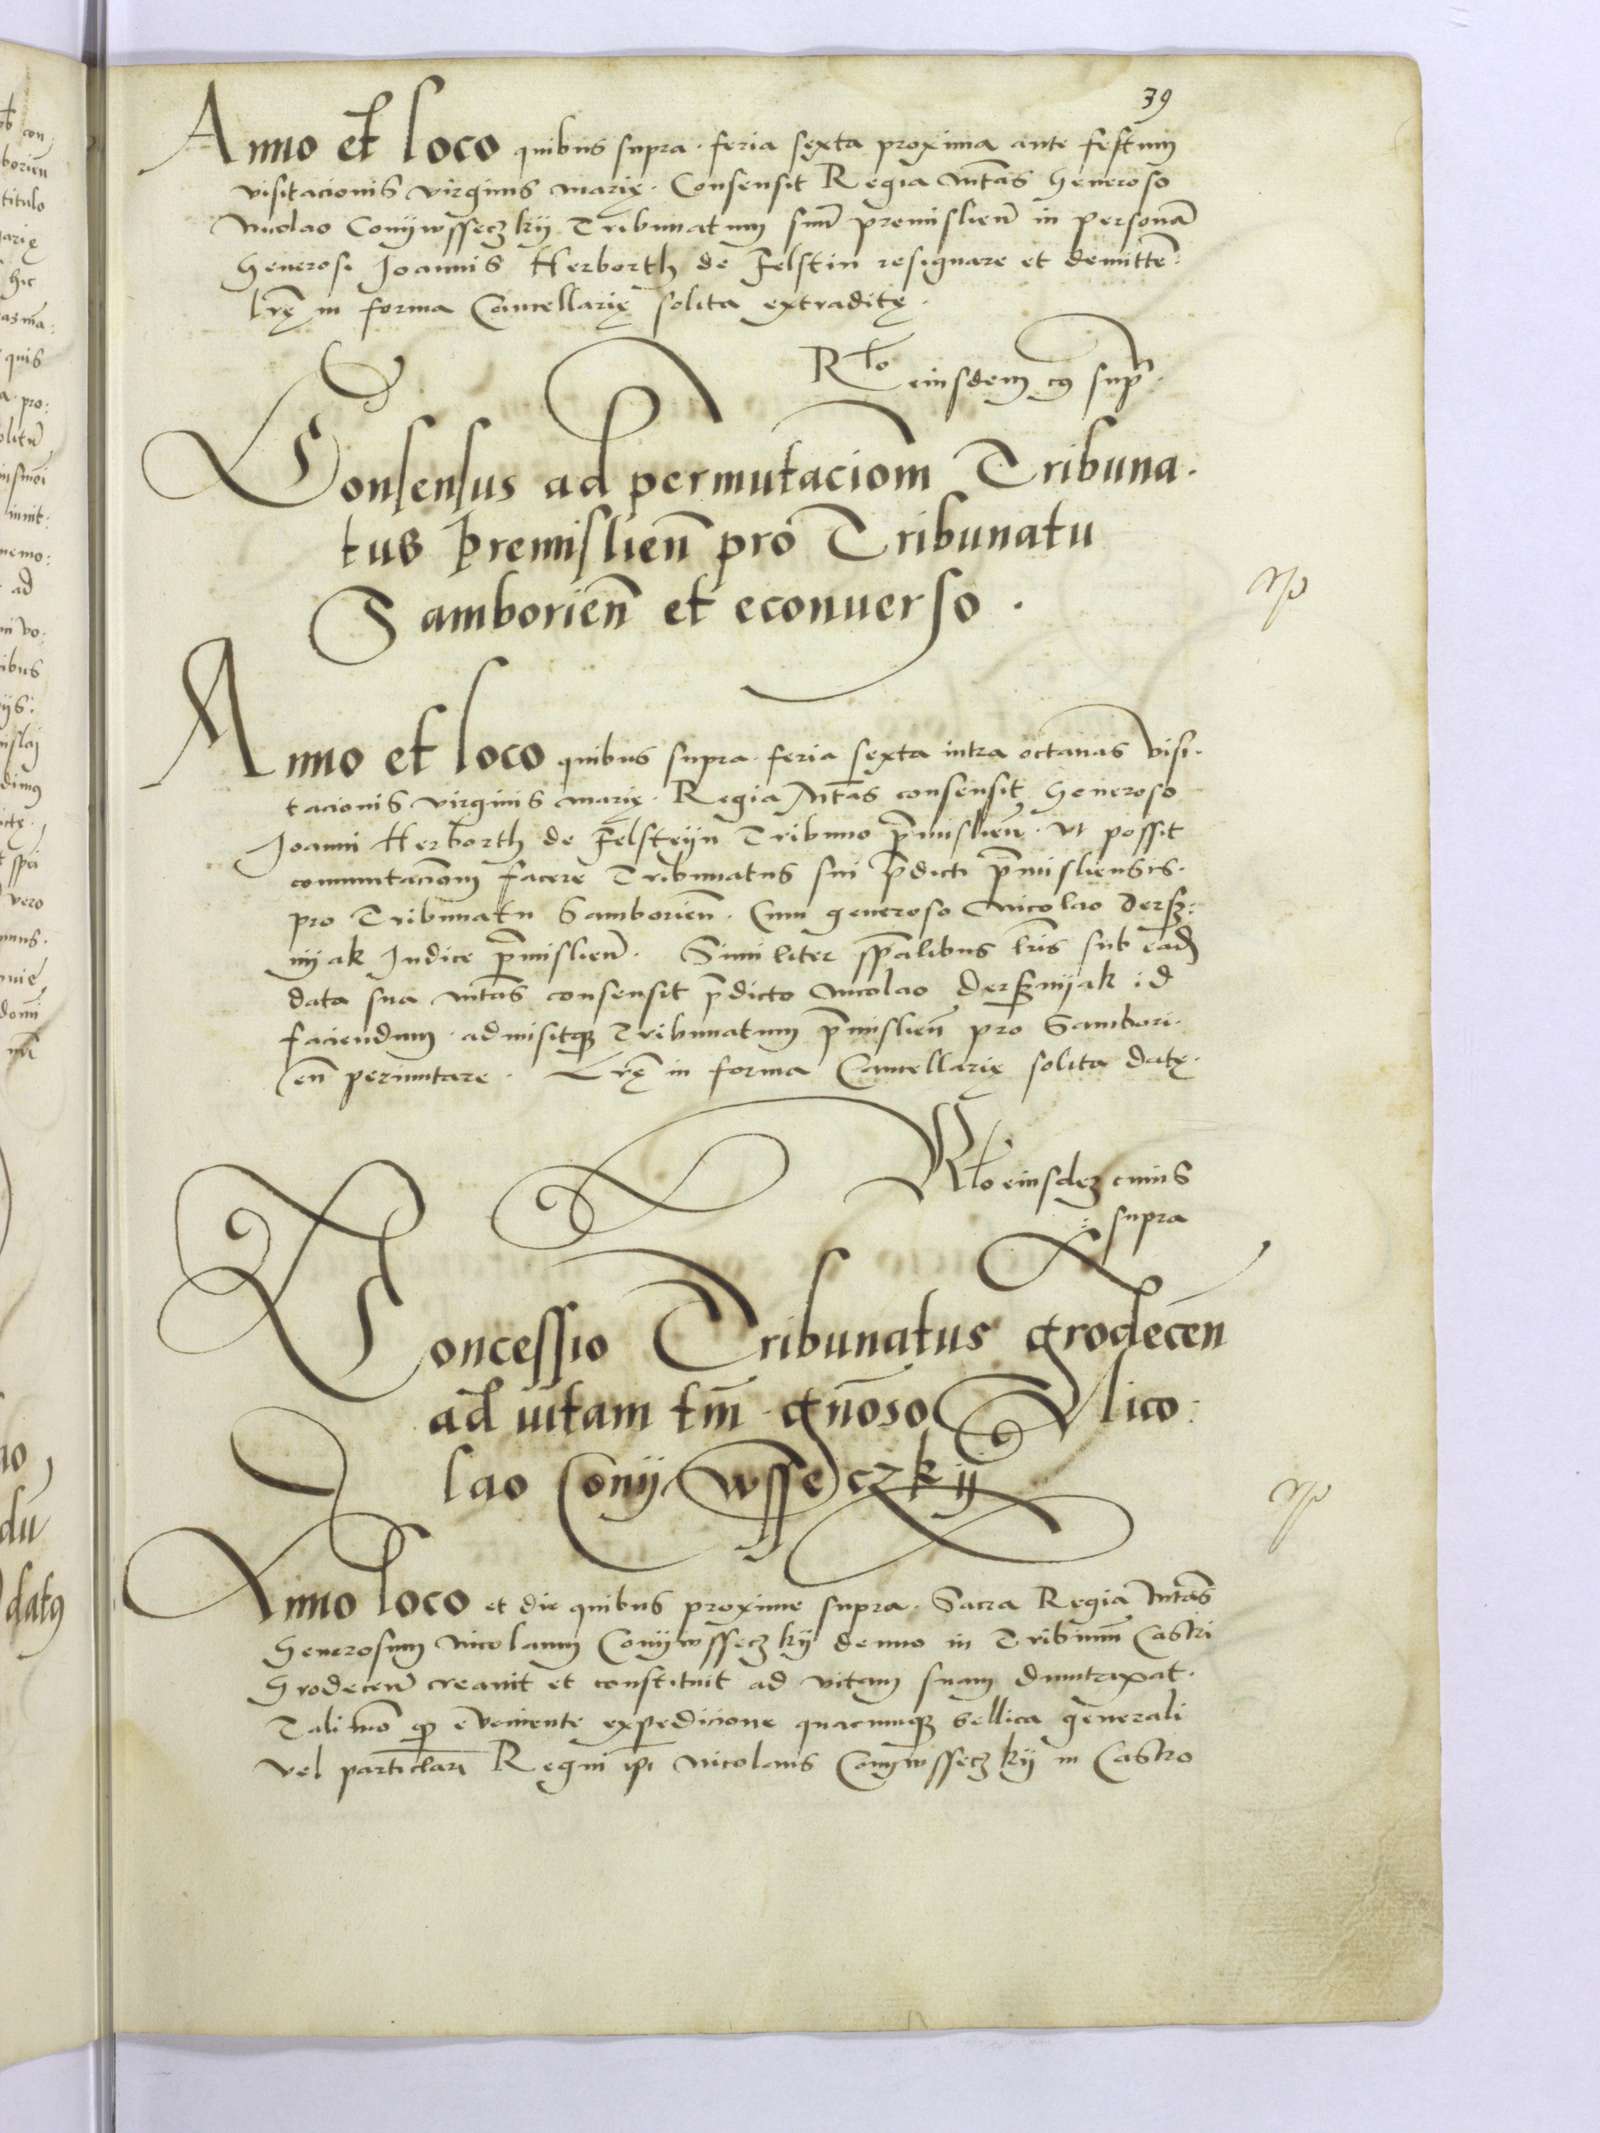 39
Anno et loco quibus supra. feria sexta proxima ante festum
visitacionis virginis marię. Consensit Regia Mtas Generoso
Nicolao Conijwsseczkij Tribunatum suū premisliēn in personā
Generosi Joannis Herborth de Felstin resignare et demittē.
lrę in forma Cancellarię solita extraditę.
Rlo eiusdem cꝰ supͣ.
Consensus ad permutaciom̄ Tribuna.
tus Premislien̄ pro Tribunatu
Samborien̄ et econuerso.
Anno et loco quibus supra. feria sexta intra octauas visi.
tacionis virginis marię. Regia Mtas consensit Generoso
Joanni Herborth de Felsteijn Tribuno p̄mislien̄. Vt possit
comutaciom̄ facere Tribunatus sui p̄dicti p̄misliensis.
pro Tribunatu Samborien̄. Cum generoso Nicolao Derss:
nijak Judice p̄mislien̄. Similiter sp̄alibus lris sub ead̄
data sua Mtas consensit p̄dicto Nicolao Derssnijak id
faciendum. admisitqꝫ Tribunatum p̄mislien̄ pro Sambori.
en̄ permutare. Lrę in forma Cancellarię solita datę.
Rlo eiusdeꝫ cuius
supra
Concessio Tribunatus Grodecen̄
ad uitam tm̄ gn̄oso Nico:
lao Conijwsseczkij
Anno loco et die quibus proxime supra. Sacra Regia Mtas
Generosum Nicolaum Conijwsseczkij denuo in Tribunū Castri
Grodecen̄ creauit et constituit ad vitam suam duntaxat.
Tali mō qꝫ eveniente expedicione quacunqꝫ bellica generali
vel particlari Regni ip̄e Nicolaus Conijwsseczkij in Castro